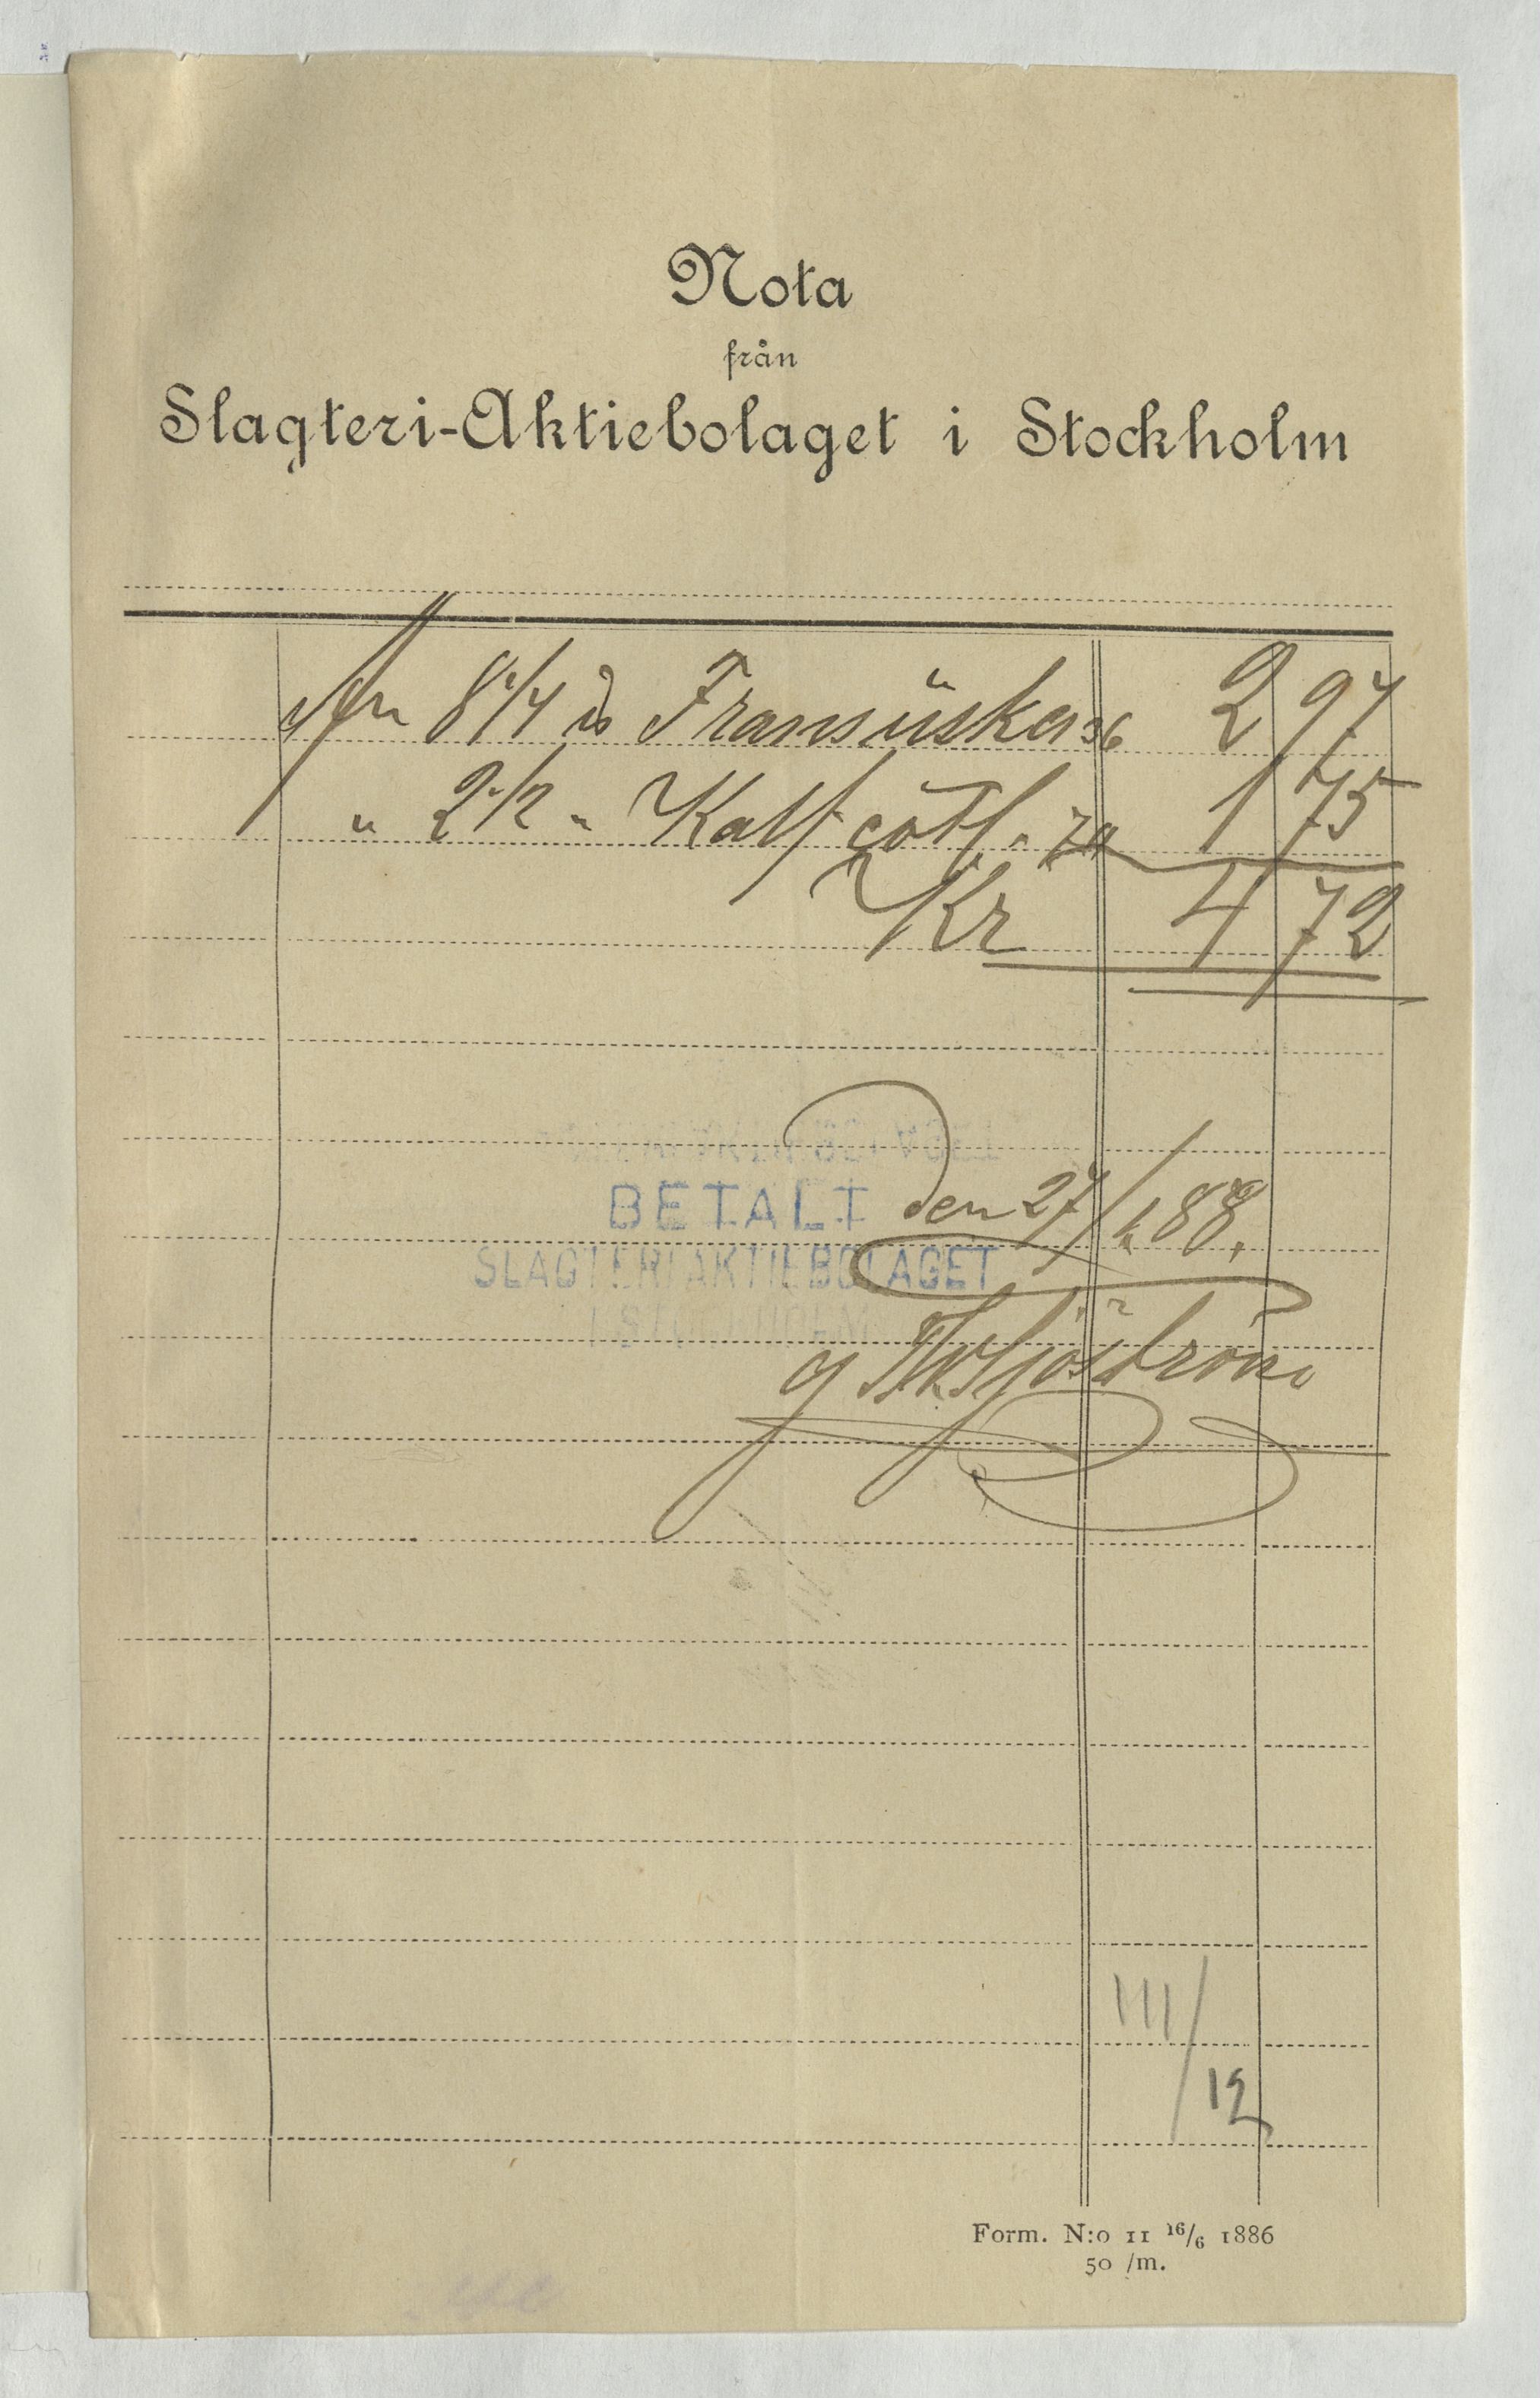 Nota
från
Slagteri-Aktiebolaget i Stockholm
8 1/4 Fransüsker 36 2 97
" 2 1/2 " Kalf cotl. " 70 1 75
Kr 4 72
BETALT den 27/ 88.
SLAGTERIAKTIEBOLAGET
I STOCKHOLM
Sjöström
III/12
Form. N:o 11 16/6 1886
50 /m.